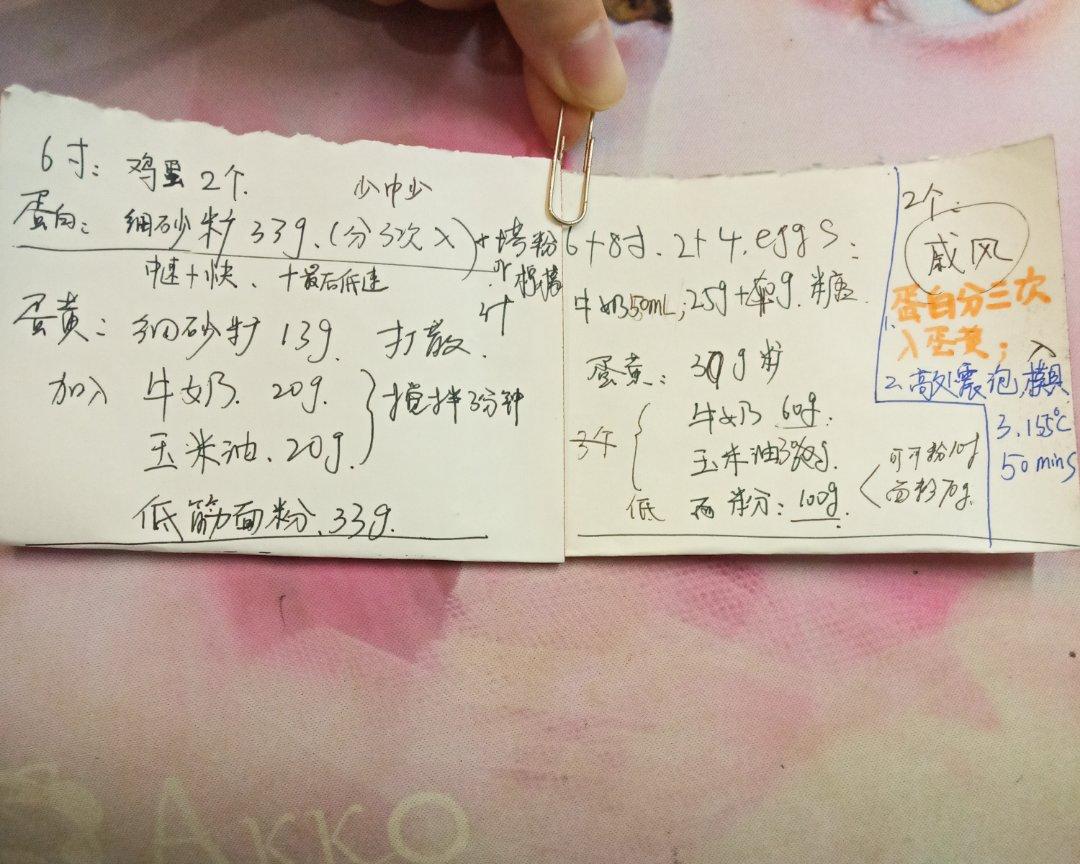 6寸: 鸡蛋 2个.
少中少
蛋白: 细砂籽 33g. (分3次入) + 塔粉
中速+快. +最后低速 or 柠檬汁
蛋黄: 细砂籽 13g. 打散.
加入 牛奶. 20g. } 搅拌3分钟
玉米油. 20g.
低筋面粉. 33g.
6+8寸. 2+4. eggs:
牛奶50mL; 25g+ g. 糖
蛋黄: 30g 籽
3个 { 牛奶 60g.
玉米油 g.
低 面粉: 100g. < 可可粉10g
面粉70g.
2个:
戚风
1. 蛋白分三次
入蛋黄; 入
2. 高处震泡, 模具
3. 155℃
50 mins
AKKO